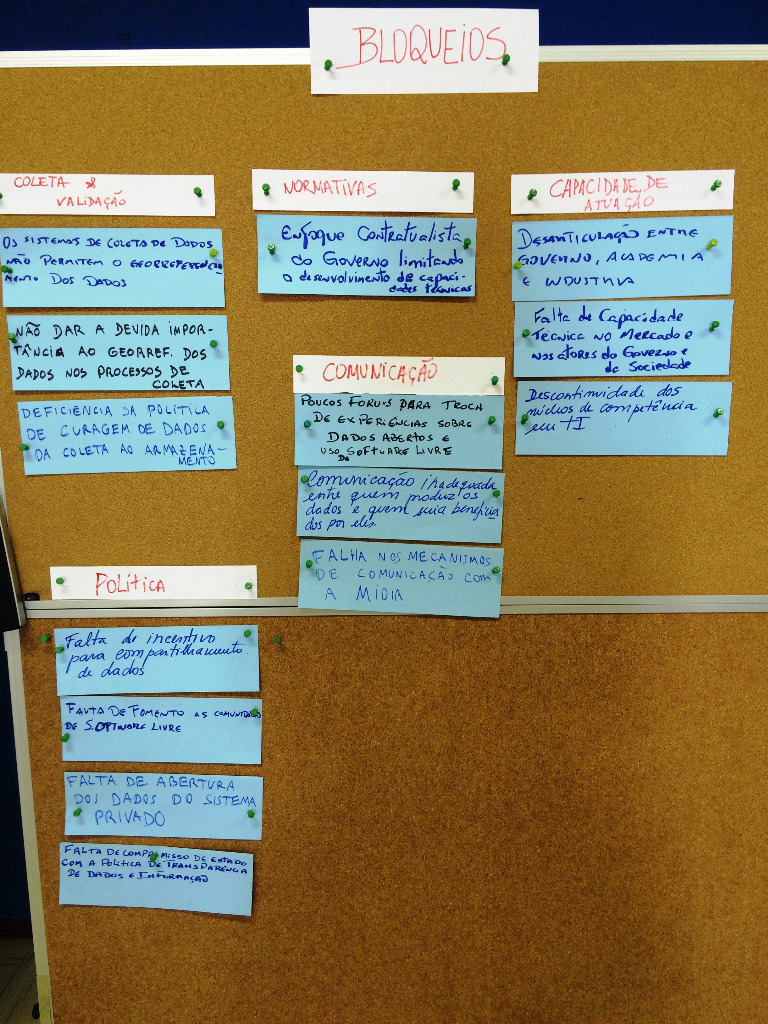 BLOQUEIOS
COLETA &
VALIDAÇÃO
OS SISTEMAS DE COLETA DE DADOS
NÃO PERMITEM O GEORREFERENCIA-
MENTO DOS DADOS
NÃO DAR A DEVIDA IMPOR-
TÂNCIA AO GEORREF. DOS
DADOS NOS PROCESSOS DE
COLETA
DEFICIÊNCIA DA POLÍTICA
DE CURAGEM DE DADOS
DA COLETA AO ARMAZENA-
MENTO
NORMATIVAS
Enfoque Contratualista
do Governo limitando
o desenvolvimento de capaci-
dades técnicas
CAPACIDADE DE
ATUAÇÃO
DESARTICULAÇÃO ENTRE
GOVERNO, ACADEMIA
E INDUSTRIA
Falta de Capacidade
Técnica no Mercado e
nos atores do Governo e
da Sociedade
Descontinuidade dos
núcleos de competência
em TI
COMUNICAÇÃO
POUCOS FORUNS PARA TROCA
DE EXPERIÊNCIAS SOBRE
DADOS ABERTOS E
USO DO SOFTWARE LIVRE
Comunicação inadequada
entre quem produz os
dados e quem seria beneficia
dos por eles
FALHA NOS MECANISMOS
DE COMUNICAÇÃO COM
A MÍDIA
POLÍTICA
Falta de incentivo
para compartilhamento
de dados
FALTA DE FOMENTO AS COMUNIDADES
DE SOFTWARE LIVRE
FALTA DE ABERTURA
DOS DADOS DO SISTEMA
PRIVADO
FALTA DE COMPROMISSO DE ESTADO
COM A POLÍTICA DE TRANSPARÊNCIA
DE DADOS E INFORMAÇÃO